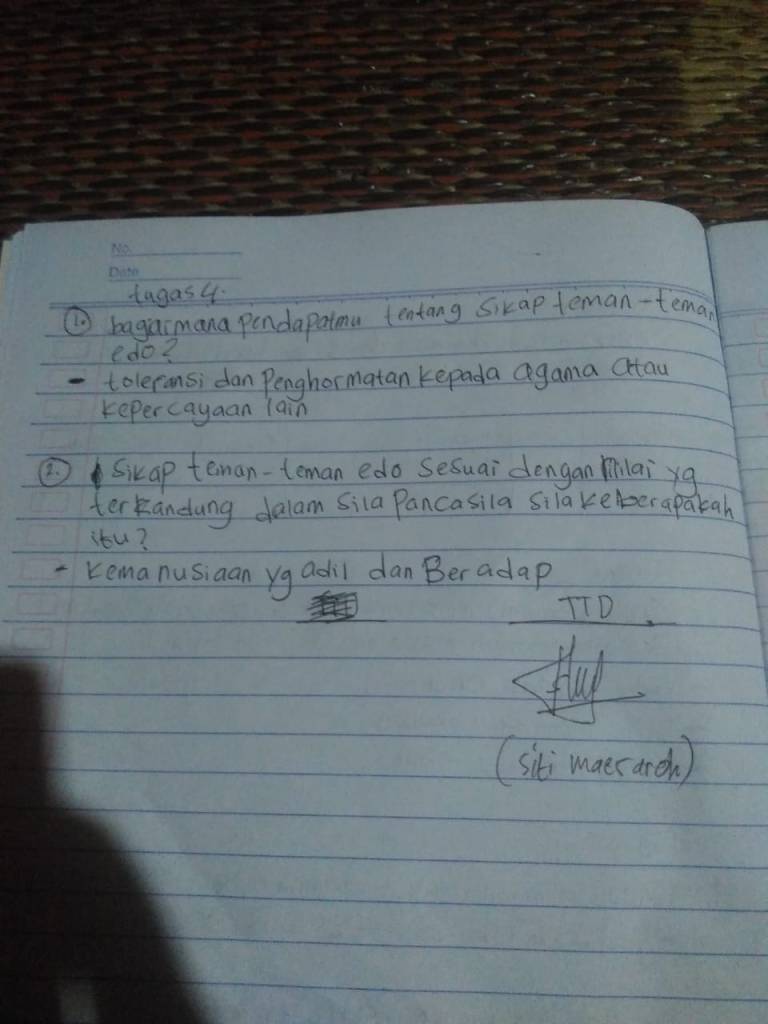 No.
Date
tugas 4.
1. bagaimana pendapatmu tentang sikap teman-teman
edo?
- toleransi dan Penghormatan kepada agama atau
kepercayaan lain
2. Sikap teman-teman edo sesuai dengan nilai yg
terkandung dalam sila Pancasila sila keberapakah
itu?
- kemanusiaan yg adil dan Beradap
TTD
(siti maesaroh)